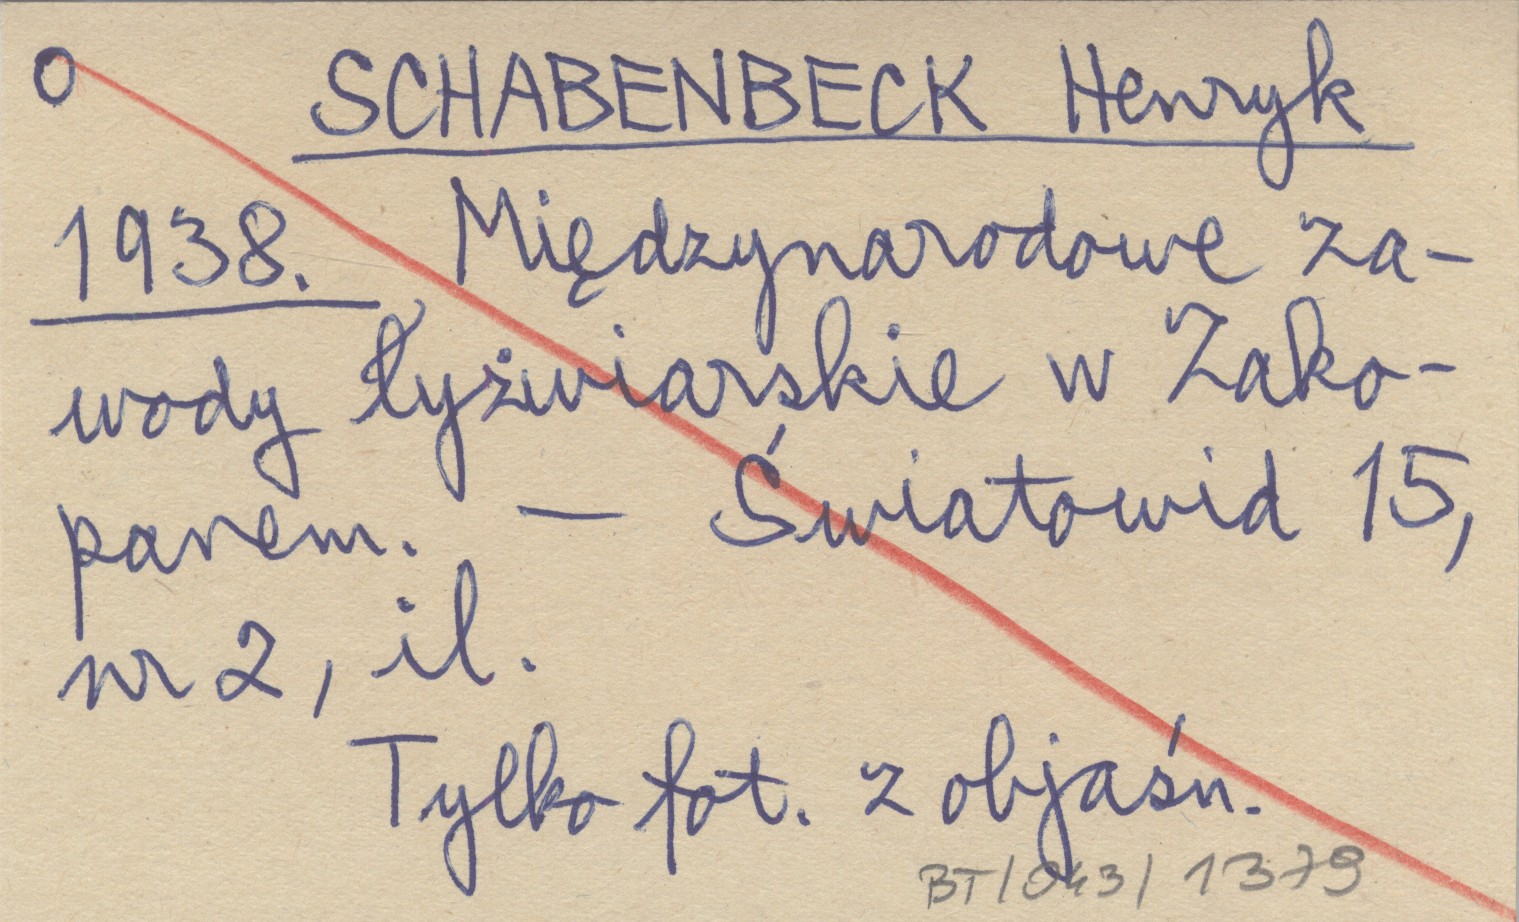 O SCHABENBECK Henryk
1938. Międzynarodowe za-
wody łyżwiarskie w Zako-
panem. — Światowid 15,
nr 2, il.
Tylko fot. z objaśn.
BT/043/1379